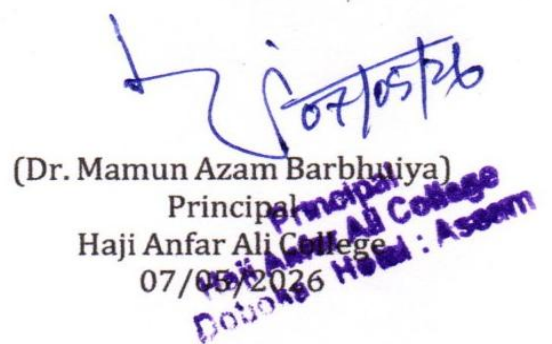 07/05/26
(Dr. Mamun Azam Barbhuiya)
Principal
Haji Anfar Ali College
07/05/2026
Principal
Haji Anfar Ali College
Doboka Hojai : Assam